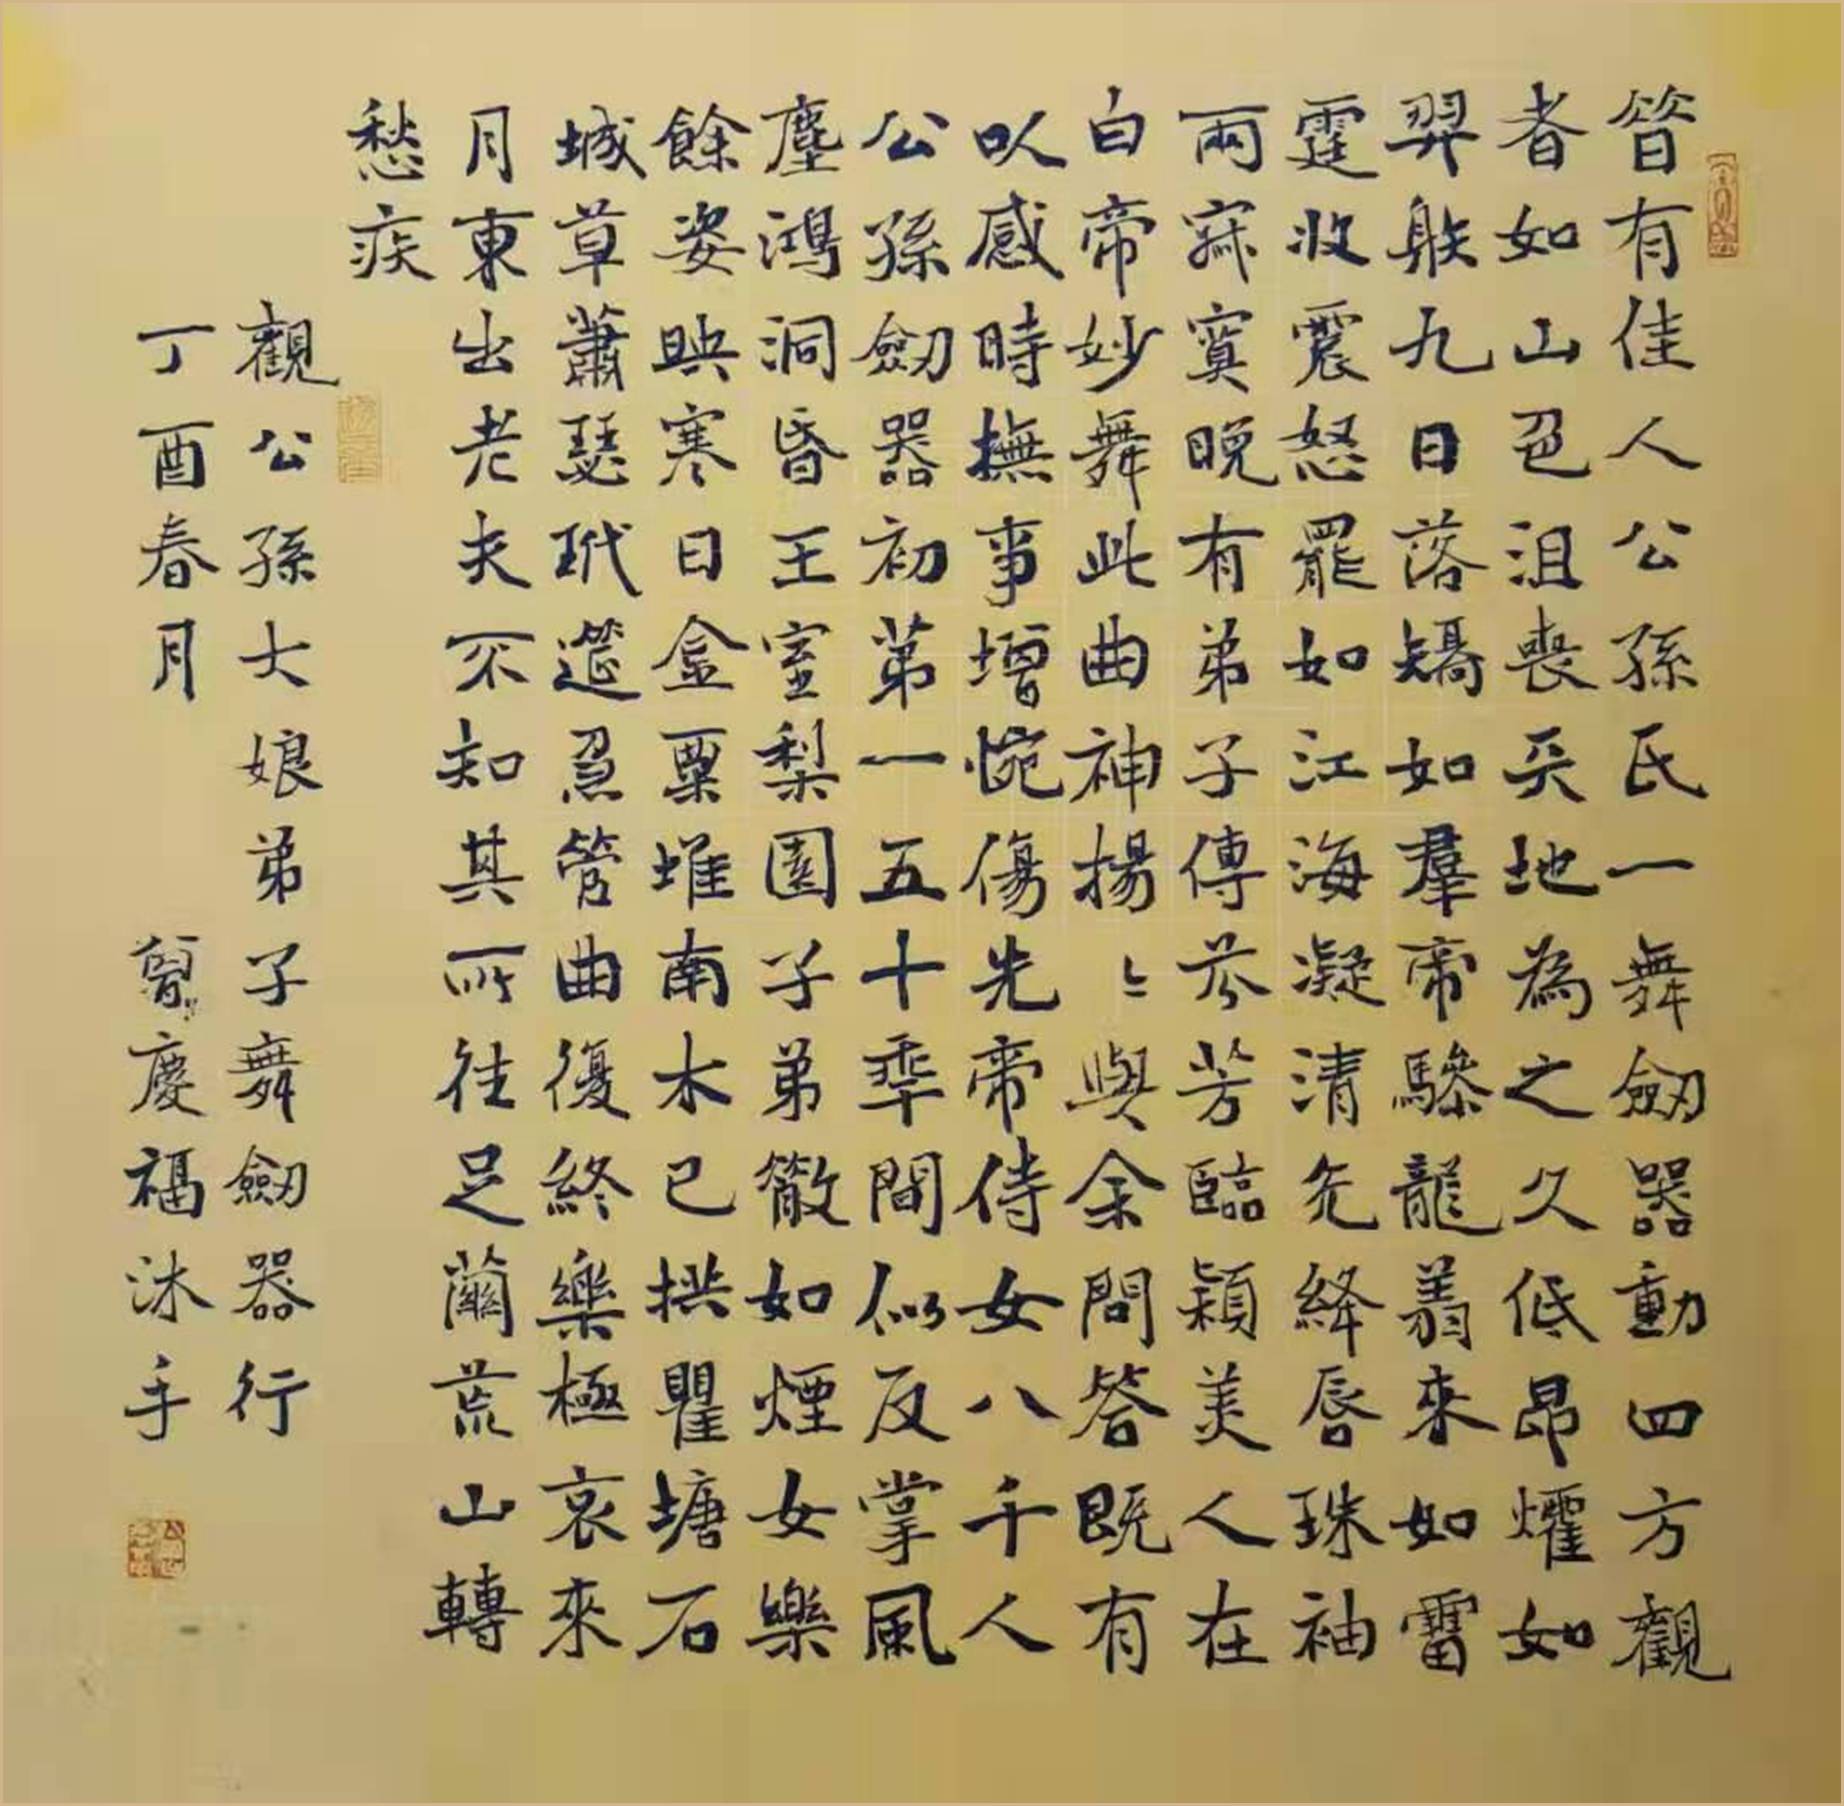 昔有佳人公孫氏一舞劒器動四方觀
者如山色沮喪天地為之久低昂燿如
羿躲九日落矯如羣帝驂龍翔來如雷
霆收震怒罷如江海凝清光絳唇珠袖
兩寂寞晚有弟子傳芬芳臨穎美人在
白帝妙舞此曲神揚〻與余問答既有
以感時撫事增惋傷先帝侍女八千人
公孫劒器初第一五十年間似反掌風
塵鴻洞昏王室梨園子弟散如煙女樂
餘姿映寒日金粟堆南木已拱瞿塘石
城草蕭瑟玳筵急管曲復終樂極哀來
月東出老夫不知其所往足繭荒山轉
愁疾
觀公孫大娘弟子舞劒器行
丁酉春月 慶福沐手